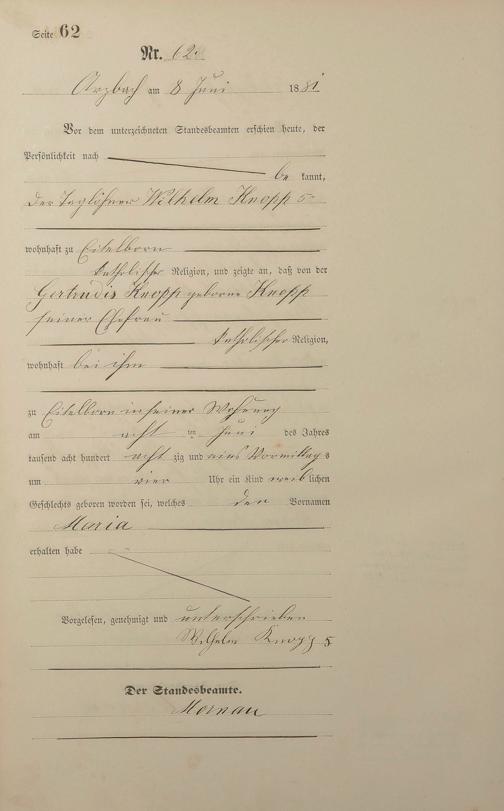 Seite 62
Nr. 62.
Arzbach am 8 Juni 1881
Vor dem unterzeichneten Standesbeamten erschien heute, der
Persönlichkeit nach
be kannt,
der Taglöhner Wilhelm Knopp 5
wohnhaft zu Eitelborn
katholischer Religion, und zeigte an, daß von der
Gertrudis Knopp geborne Knopp
seiner Ehefrau
katholischer Religion,
wohnhaft bei ihm
zu Eitelborn in seiner Wohnung
am acht ten Juni des Jahres
tausend acht hundert acht zig und eins Vormittags
um vier Uhr ein Kind weiblichen
Geschlechts geboren worden sei, welches den Vornamen
Maria
erhalten habe
Vorgelesen, genehmigt und unterschrieben
Wilhelm Knopp 5
Der Standesbeamte.